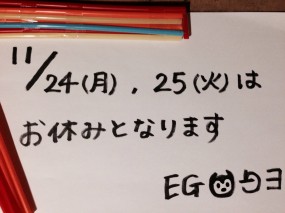 11/24(月), 25(火)は
お休みとなります
EGOラヨ